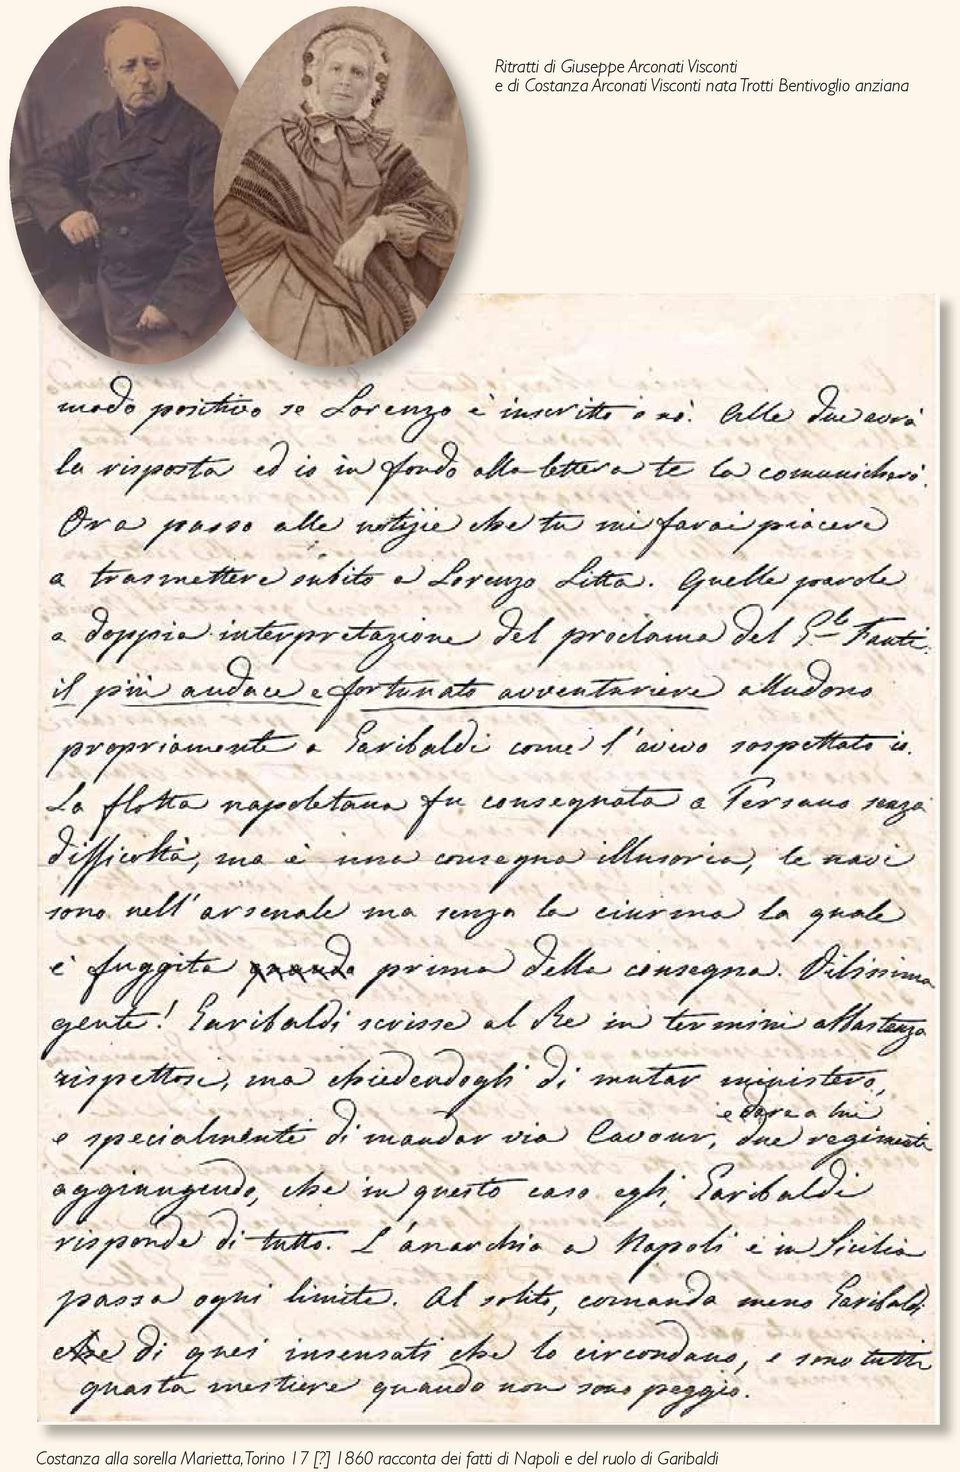 Ritratti di Giuseppe Arconati Visconti
e di Costanza Arconati Visconti nata Trotti Bentivoglio anziana
modo positivo se Lorenzo è inscritto o nò. Alle due avrà
la risposta ed io in fondo alla lettera te la comunicherò.
Ora passo alle notizie che tu mi farai piacere
a trasmettere subito a Lorenzo Litta. Quelle parole
a doppia interpretazione del proclama del G.le Fanti:
il più audace e fortunato avventuriere alludono
propriamente a Garibaldi come l'avevo sospettato io.
La flotta napoletana fu consegnata a Persano senza
difficoltà, ma è una consegna illusoria, le navi
sono nell'arsenale ma senza la ciurma la quale
è fuggita quando prima della consegna. Vilissima
gente! Garibaldi scrisse al Re in termini abbastanza
rispettosi, ma chiedendogli di mutar ministero,
e dare a lui
e specialmente di mandar via Cavour, due regimenti
aggiungendo, che in questo caso egli, Garibaldi
risponde di tutto. L'anarchia a Napoli e in Sicilia
passa ogni limite. Al solito, comanda meno Garibaldi
che di quei insensati che lo circondano, e sono tutti
guasta mestiere quando non sono peggio.
Costanza alla sorella Marietta, Torino 17 [?] 1860 racconta dei fatti di Napoli e del ruolo di Garibaldi